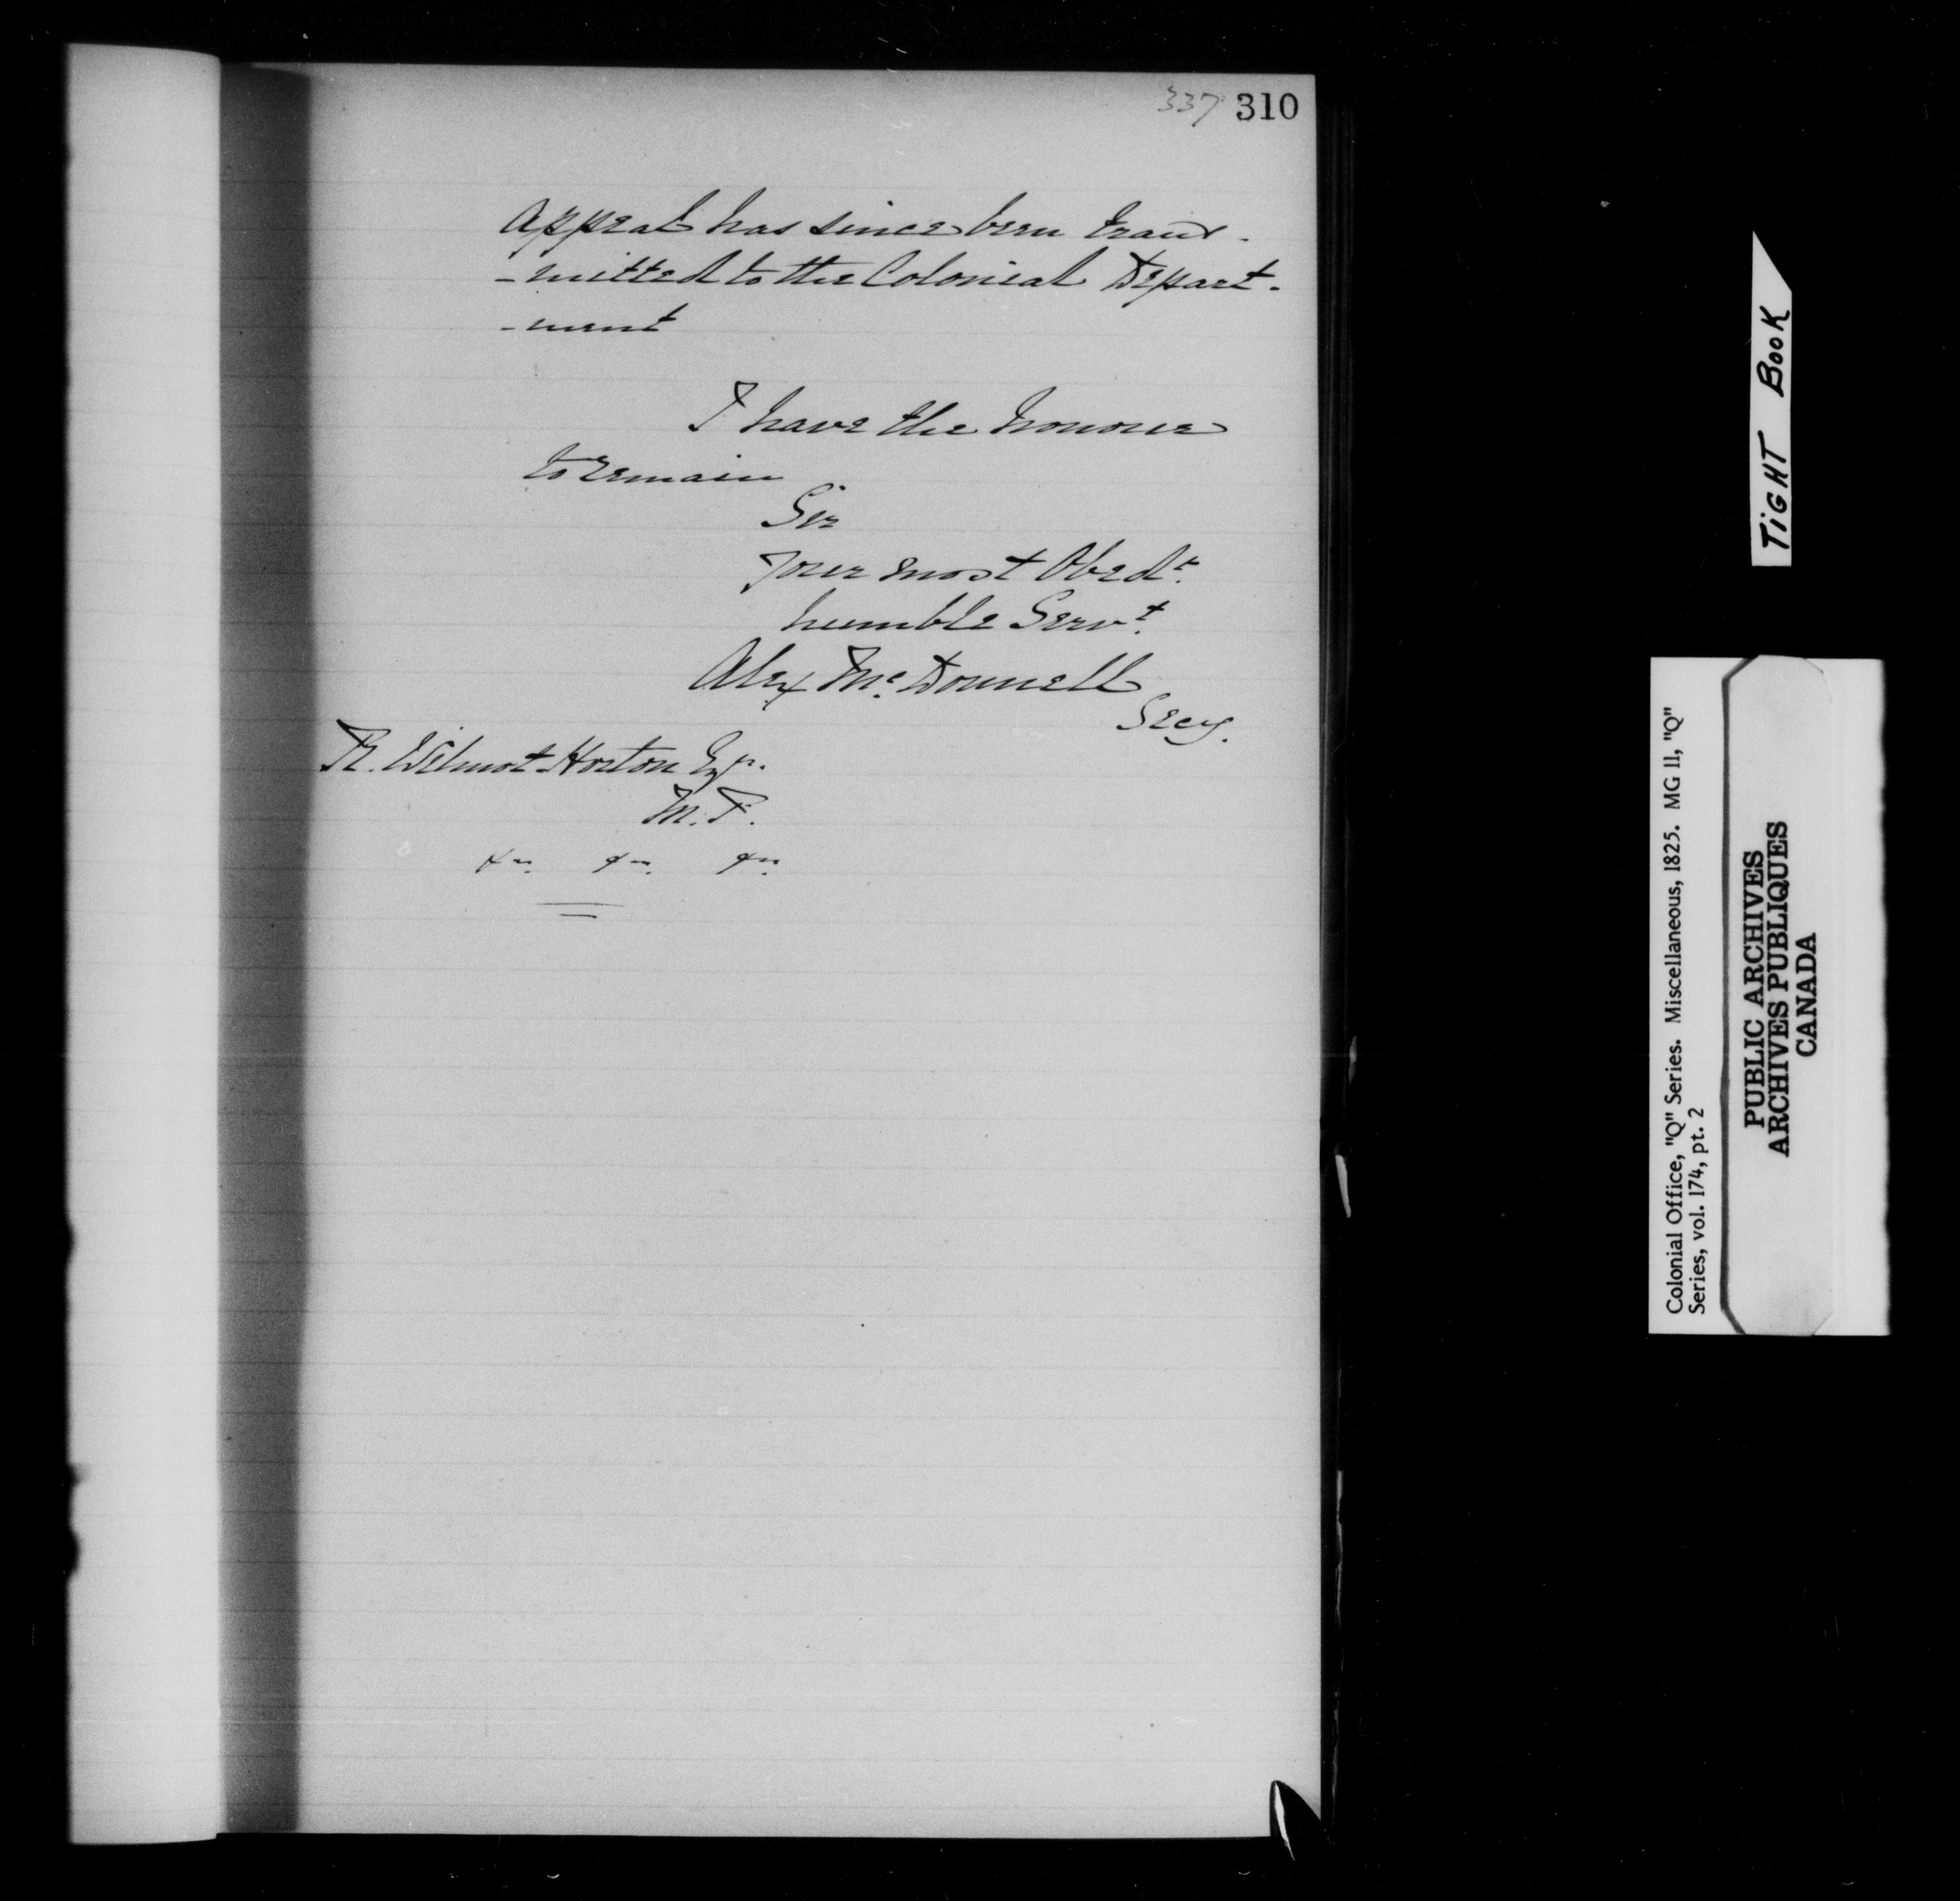 337 310
Appeal has since been trans-
-mitted to the Colonial Depart-
-ment
I have the honour
to remain
Sir
Your most Obedt.
humble Servt.
Alex Mc.Donnell
Secy.
R. Wilmot Horton Esqr.
M.P.
&c. &c. &c.
TIGHT BOOK
Colonial Office, "Q" Series. Miscellaneous, 1825. MG 11, "Q"
Series, vol. 174, pt. 2
PUBLIC ARCHIVES
ARCHIVES PUBLIQUES
CANADA